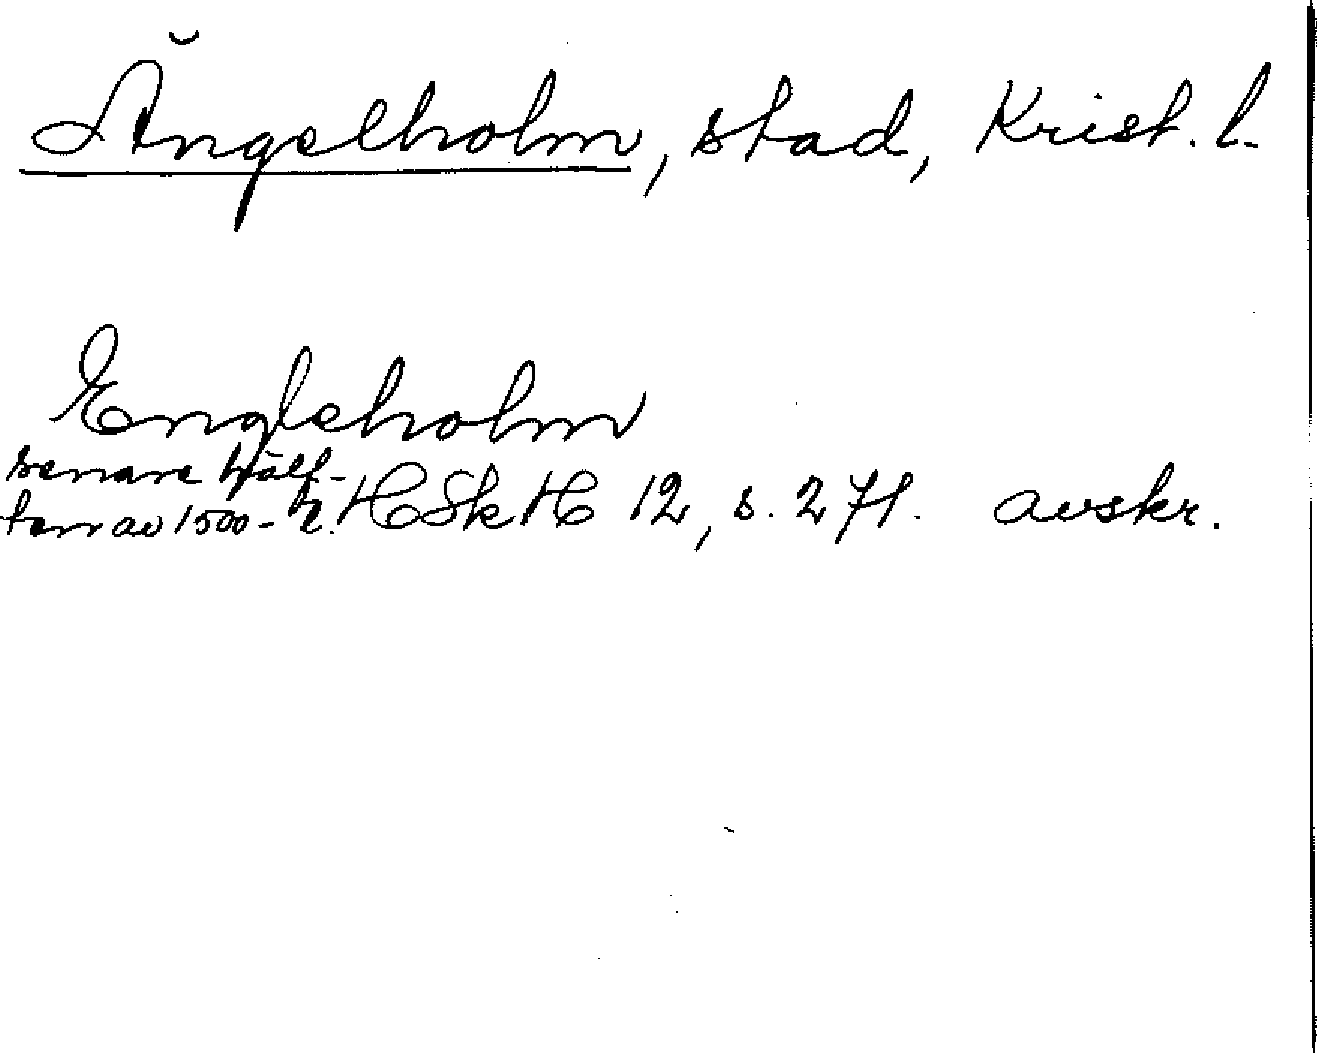 Ängelholm, stad, Krist. l.
Engleholm
senare hälf-
ten av 1500-t. HSkH 12, s. 271. avskr.